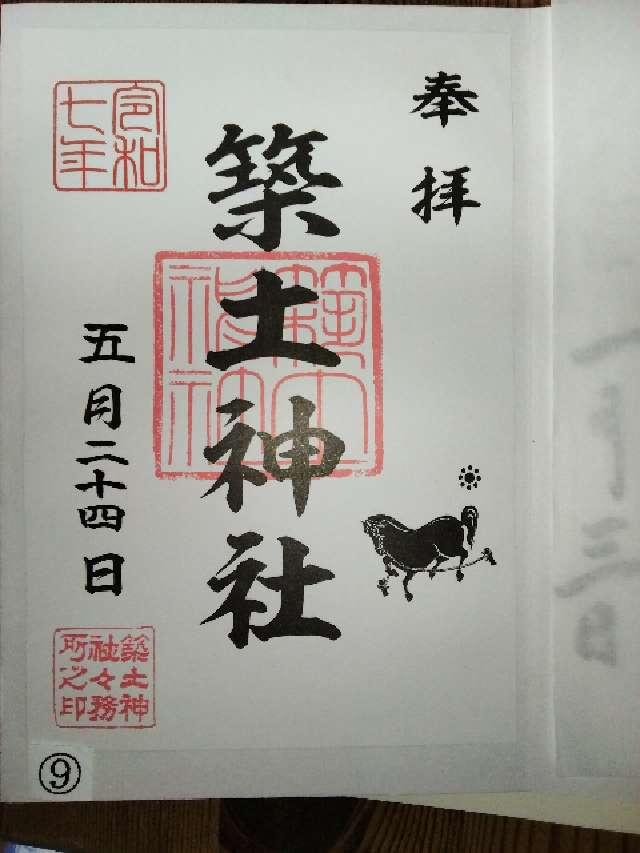 奉拝
築土神社
令和七年
五月二十四日
築土神社
築土神社々務所之印
⑨